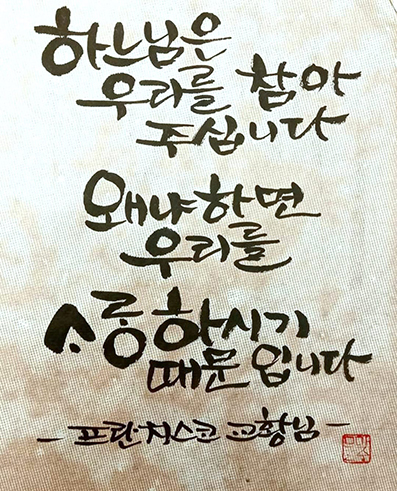 하느님은
우리를 참아
주십니다
왜냐하면
우리를
사랑하시기
때문입니다
- 프란치스코 교황님 -